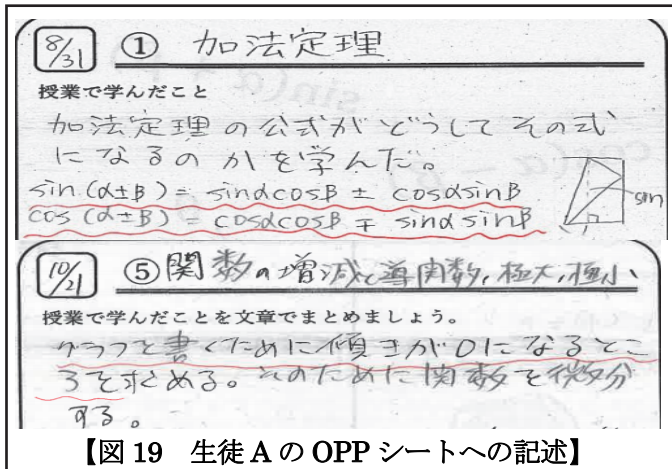 8/31 ① 加法定理
授業で学んだこと
加法定理の公式がどうしてその式
になるのかを学んだ。
sin(α±β)=sinαcosβ±cosαsinβ
cos(α±β)=cosαcosβ∓sinαsinβ
sin
10/21 ⑤関数の増減と導関数,極大,極小
授業で学んだことを文章でまとめましょう。
グラフを書くために傾きが0になるとこ
ろを求める。そのために関数を微分
する。
【図 19 生徒 A の OPP シートへの記述】